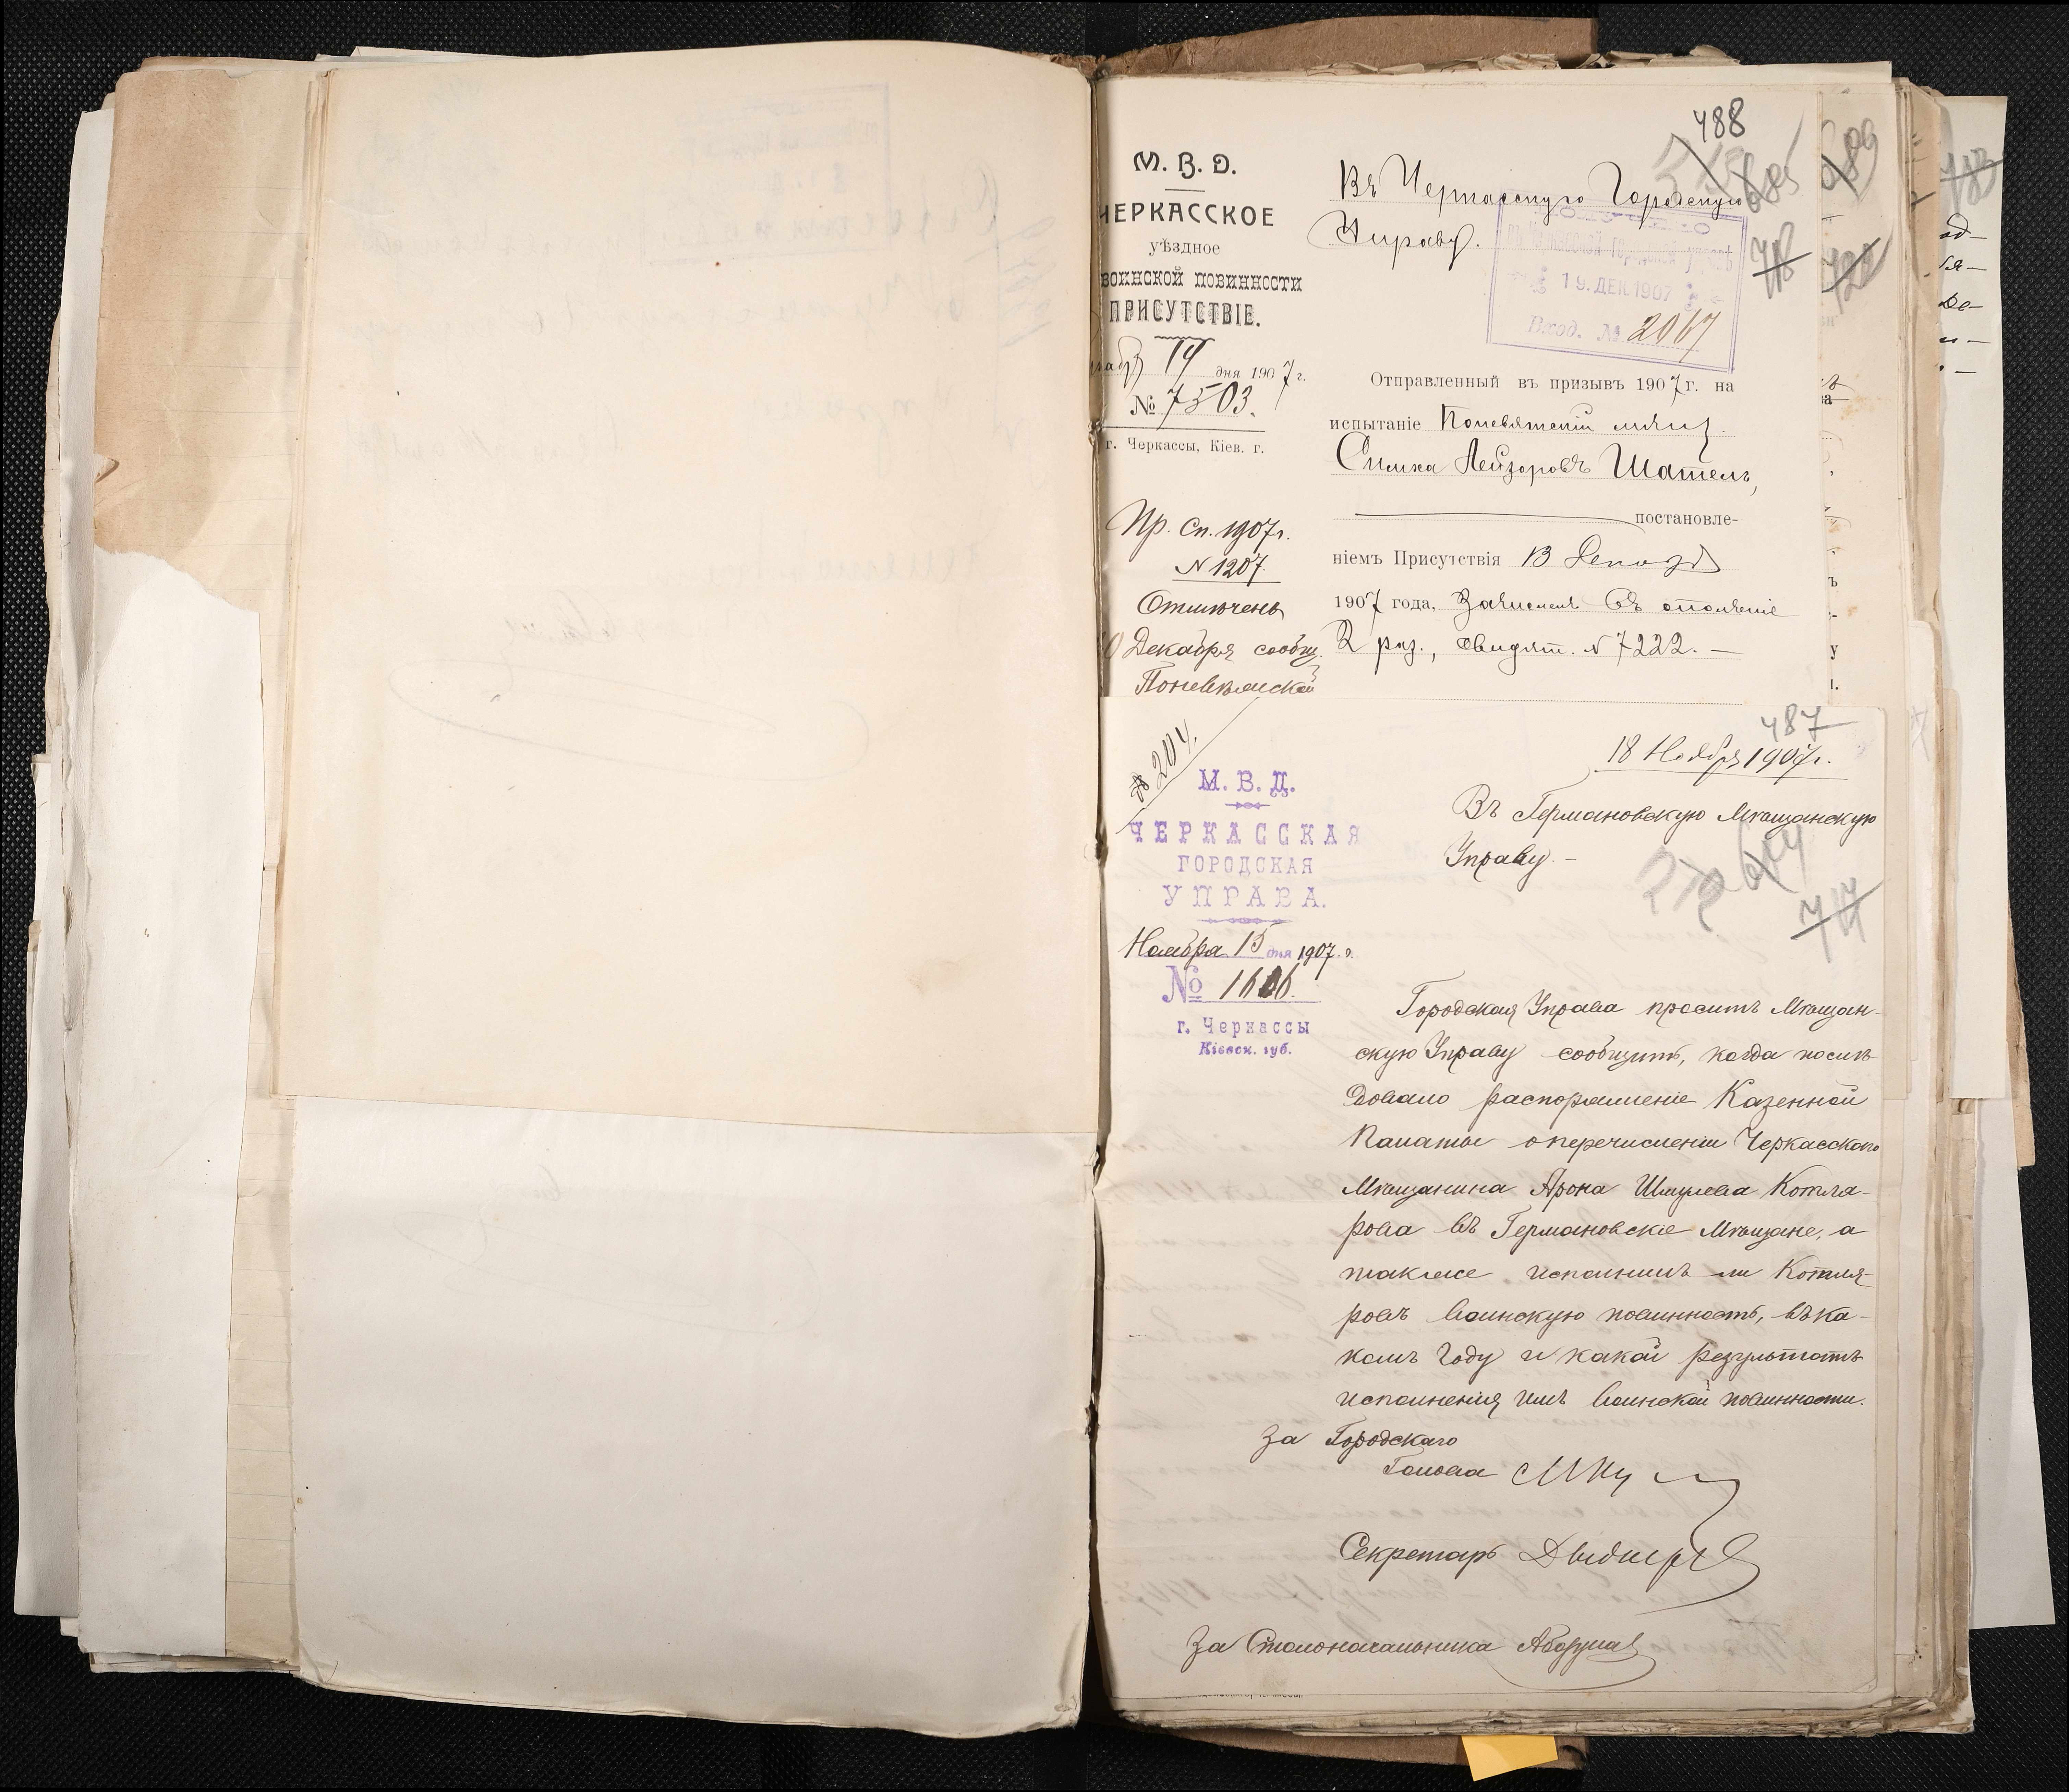 488
М. В. Д.
ЧЕРКАССКОЕ
уѣздное
ВОИНСКОЙ ПОВИННОСТИ
ПРИСУТСТВІЕ.
19 дня 1907 г.
№ 7503.
г. Черкассы, Кіев. г.
Пр. Сп. 1907 г.
N 1207
Отмѣчень
Декабря сообщ.
Въ Черкасскую Городскую
Управу.
въ Черкасской Городской Управѣ
19. ДЕК. 1907
Вход. № 2067
Отправленный въ призывъ 1907 г. на
испытаніе мѣщ.
Симха Лейзоровъ Шателъ,
постановле-
ніемъ Присутствія 13 Декаб.
1907 года, Зачисленъ въ ополченіе
2 раз., свидѣт. N 7222. —
487
18 Ноября 1907 г.
204
М. В. Д.
ЧЕРКАССКАЯ
ГОРОДСКАЯ
УПРАВА.
Ноября 15 дня 1907 г.
№ 1616.
г. Черкассы
Кіевск. губ.
Въ Германовскую Мѣщанскую
Управу. —
Городская Управа проситъ Мѣщан-
скую Управу сообщить, когда послѣ-
довало распоряженіе Казенной
Палаты о перечисленіи Черкасскаго
Мѣщанина Арона Шмулева Котля-
рова въ Германовскіе Мѣщане, а
также исполнилъ ли Котля-
ровъ воинскую повинность, въ ка-
комъ году и какой результатъ
исполненія имъ воинской повинности.
За Городскаго
Голова
Секретарь
За Столоначальника